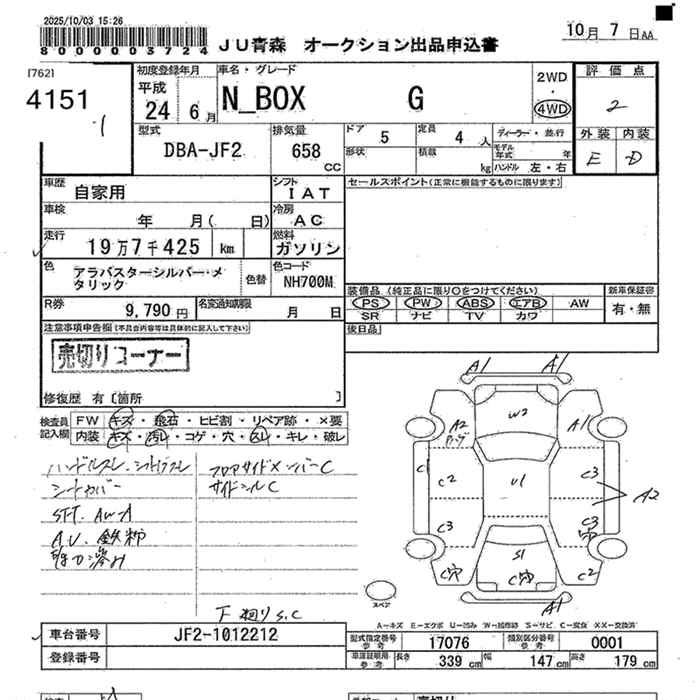 2025/10/03 15:26
8000003724
JU青森 オークション出品申込書
10月 7日AA
[762]
4151
初度登録年月
平成
24年 6月
車名・グレード
N_BOX G
2WD
・
4WD
評価点
2
外装 内装
E D
型式
DBA-JF2
排気量
658
CC
ドア 5
定員 4 人
形状
積載 kg
ディーラー・並行
モデル年式 年
ハンドル 左・右
車歴
自家用
シフト
IAT
セールスポイント(正常に機能するものに限ります)
車検
年 月( 日)
冷房
AC
走行
19万7千425 km
燃料
ガソリン
色
アラバスターシルバー・メタリック
色替
色コード
NH700M
装備品(純正品に限り○をつけてください)
新車保証書
PS PW ABS エアB AW
SR ナビ TV カワ
有・無
R券
9,790 円
名変通知期限
月 日
後日品
注意事項申告欄(不具合内容等は具体的に記入して下さい)
売切りコーナー
修復歴 有[箇所 ]
検査員記入欄
FW キズ・飛石・ヒビ割・リペア跡・×要
内装 キズ・汚れ・コゲ・穴・スレ・キレ・破レ
ハンドルスレ、シートスレ
フロアサイドメンバーC
シートカバー
サイドシルC
社外AW A
鉄粉
下廻りS.C
A1
A1
A2
W2
A1
C1
C2
U1
C3
A2
C3
C3
S1
C穴
C穴
C2
A1
スペア
A-キズ E-エクボ U-凹み W-補修跡 S-サビ C-腐食 XX-交換済
車台番号
JF2-1012212
登録番号
型式指定番号参考
17076
類別区分番号参考
0001
車検証明用参考
長さ 339 cm
幅 147 cm
高さ 179 cm